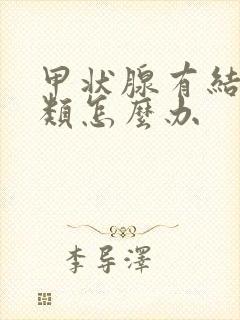 甲状腺有結
類怎麼办
李导澤